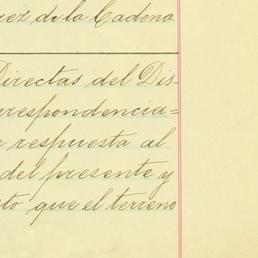 uez de la Cadena
Directas del Dis-
rrespondencia=
a respuesta al
del presente y
to que el terreno